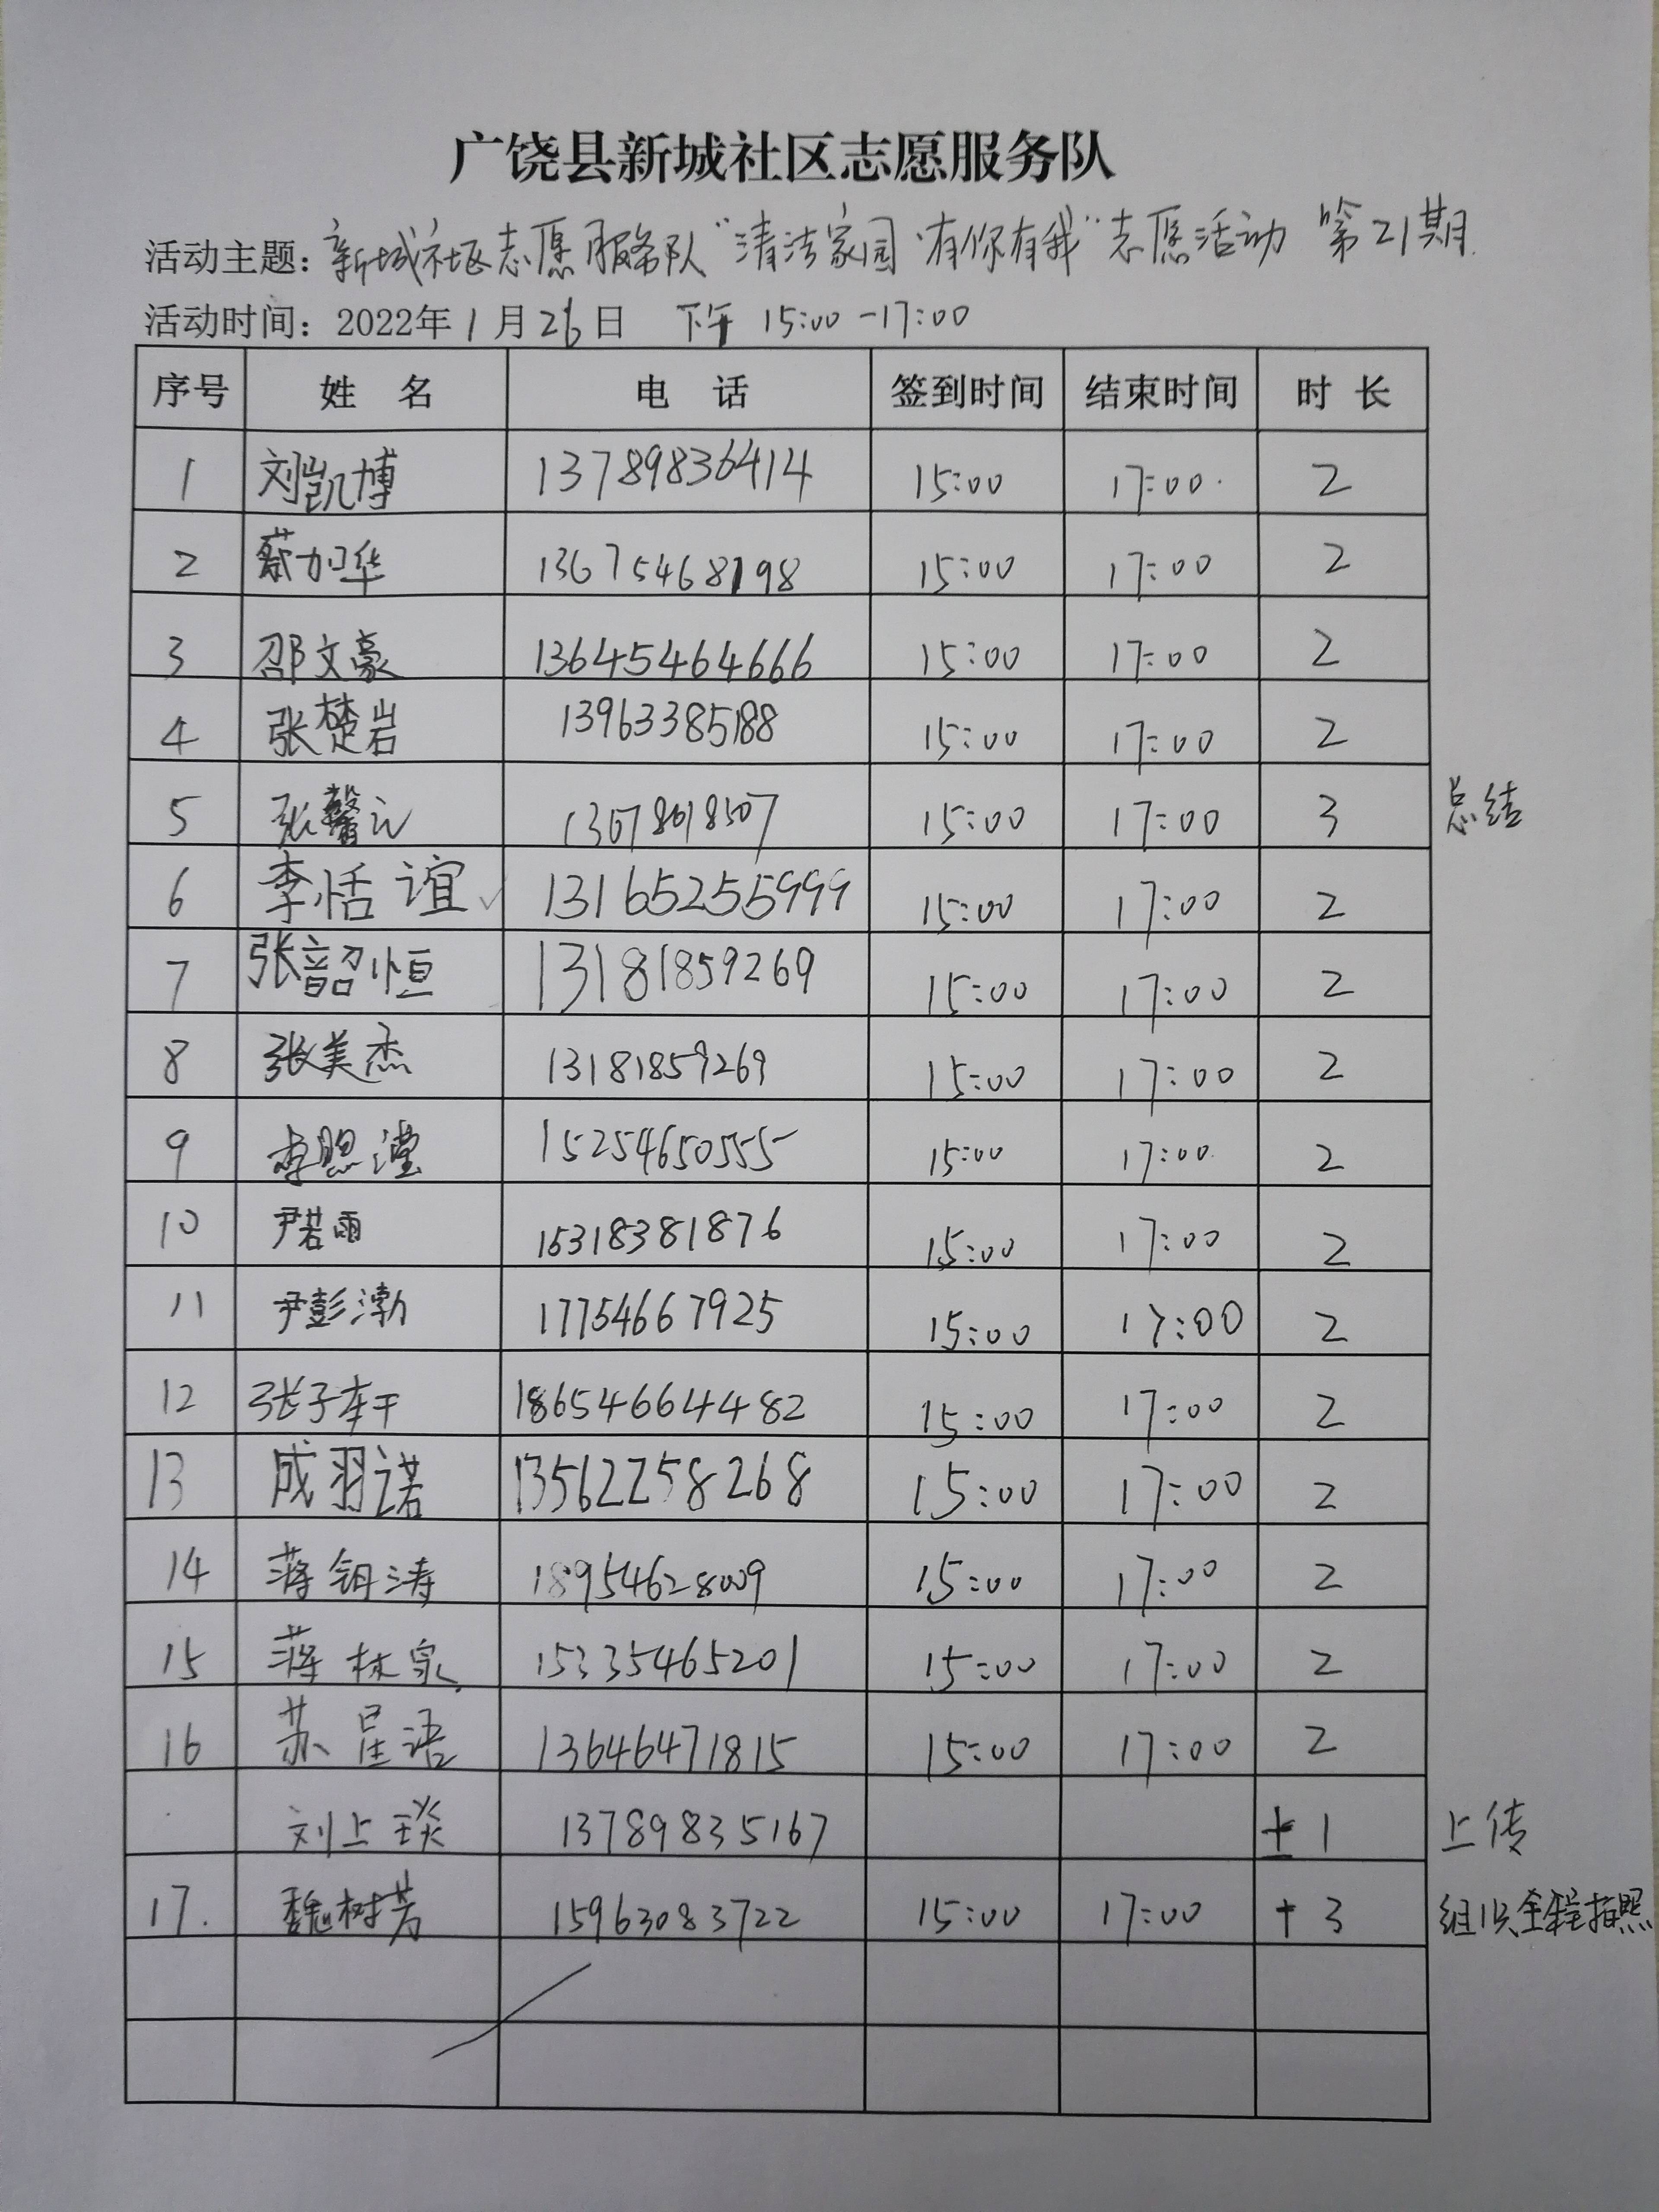 广饶县新城社区志愿服务队
活动主题：新城社区志愿服务队“清洁家园·有你有我”志愿活动 第21期.
活动时间：2022年1月26日 下午 15:00-17:00
序号 姓 名 电 话 签到时间 结束时间 时 长
1 刘凯博 13789836414 15:00 17:00 2
2 蔡加华 13675468198 15:00 17:00 2
3 邵文豪 13645464666 15:00 17:00 2
4 张楚岩 13963385188 15:00 17:00 2
5 张馨元 15:00 17:00 3 总结
6 李恬谊 13165255999 15:00 17:00 2
7 张韶恒 13181859269 15:00 17:00 2
8 张美杰 13181859269 15:00 17:00 2
9 15254650555 15:00 17:00 2
10 尹若雨 15318381876 15:00 17:00 2
11 尹彭渤 17754667925 15:00 17:00 2
12 张子轩 18654664482 15:00 17:00 2
13 成羽诺 13562258268 15:00 17:00 2
14 蒋钥涛 18954628009 15:00 17:00 2
15 蒋林泉 15335465201 15:00 17:00 2
16 苏星语 13646471815 15:00 17:00 2
刘上琰 13789835167 +1 上传
17. 魏树芳 15963083722 15:00 17:00 +3 组织全程拍照